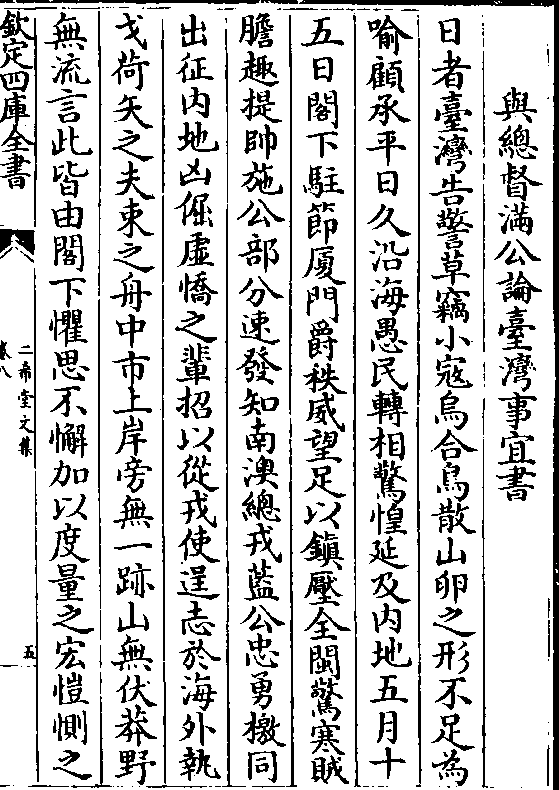 與總督滿公論臺灣事宜書
日者臺灣告警草竊小寇烏合鳥散山卵之形不足為
喻顧承平日久沿海愚民轉相驚惶延及内地五月十
五日閣下駐節厦門爵秩威望足以鎮壓全閩驚寒賊
膽趣提帥施公部分速發知南澳總戎藍公忠勇檄同
出征内地凶倔虛憍之輩招以從戎使逞志於海外執
戈荷矢之夫束之舟中市上岸旁無一跡山無伏莽野
無流言此皆由閣下懼思不懈加以度量之宏愷惻之
欽定四庫全書
二希堂文集
卷八
五